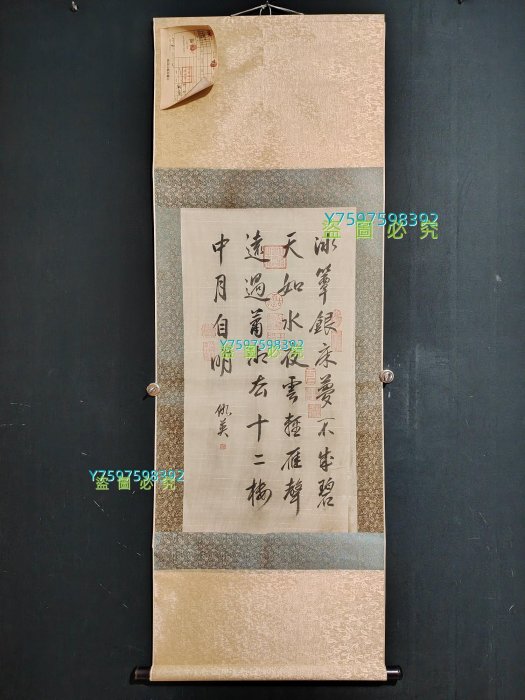 Y7597598392
盜圖必究
冰簟銀床夢不成碧
天如水夜雲輕雁聲
遠過瀟湘去十二樓
中月自明
仇英
Y7597598392
盜圖必究
Y7597598392
盜圖必究